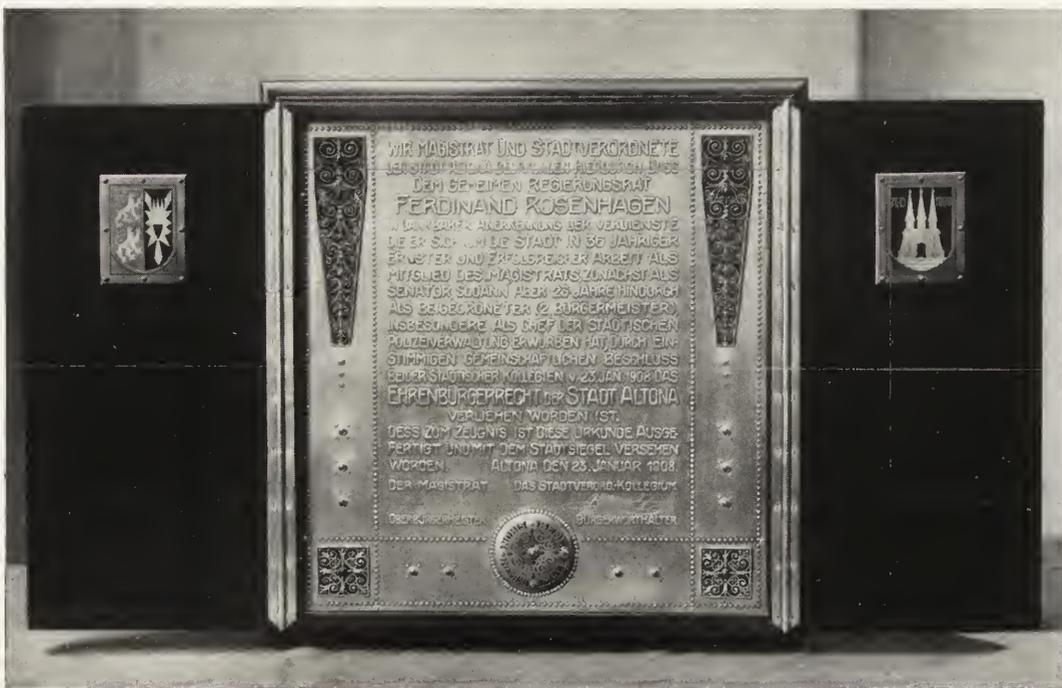 WIR MAGISTRAT UND STADTVERORDNETE
DER STADT ALTONA BEURKUNDEN HIERDURCH DASS
DEM GEHEIMEN REGIERUNGSRAT
FERDINAND ROSENHAGEN
IN DANKBARER ANERKENNUNG DER VERDIENSTE
DIE ER SICH UM DIE STADT IN 36 JÄHRIGER
ERNSTER UND ERFOLGREICHER ARBEIT ALS
MITGLIED DES MAGISTRATS, ZUNÄCHST ALS
SENATOR SODANN ABER 26 JAHRE HINDURCH
ALS BEIGEORDNETER (2. BÜRGERMEISTER),
INSBESONDERE ALS CHEF DER STÄDTISCHEN
POLIZEIVERWALTUNG ERWORBEN HAT, DURCH EIN-
STIMMIGEN GEMEINSCHAFTLICHEN BESCHLUSS
BEIDER STÄDTISCHER KOLLEGIEN V. 23. JAN. 1908 DAS
EHRENBÜRGERRECHT DER STADT ALTONA
VERLIEHEN WORDEN IST.
DESS ZUM ZEUGNIS IST DIESE URKUNDE AUSGE-
FERTIGT UND MIT DEM STADTSIEGEL VERSEHEN
WORDEN. ALTONA DEN 23. JANUAR 1908.
DER MAGISTRAT. DAS STADTVERORD.-KOLLEGIUM.
OBERBÜRGERMEISTER BÜRGERWORTHALTER